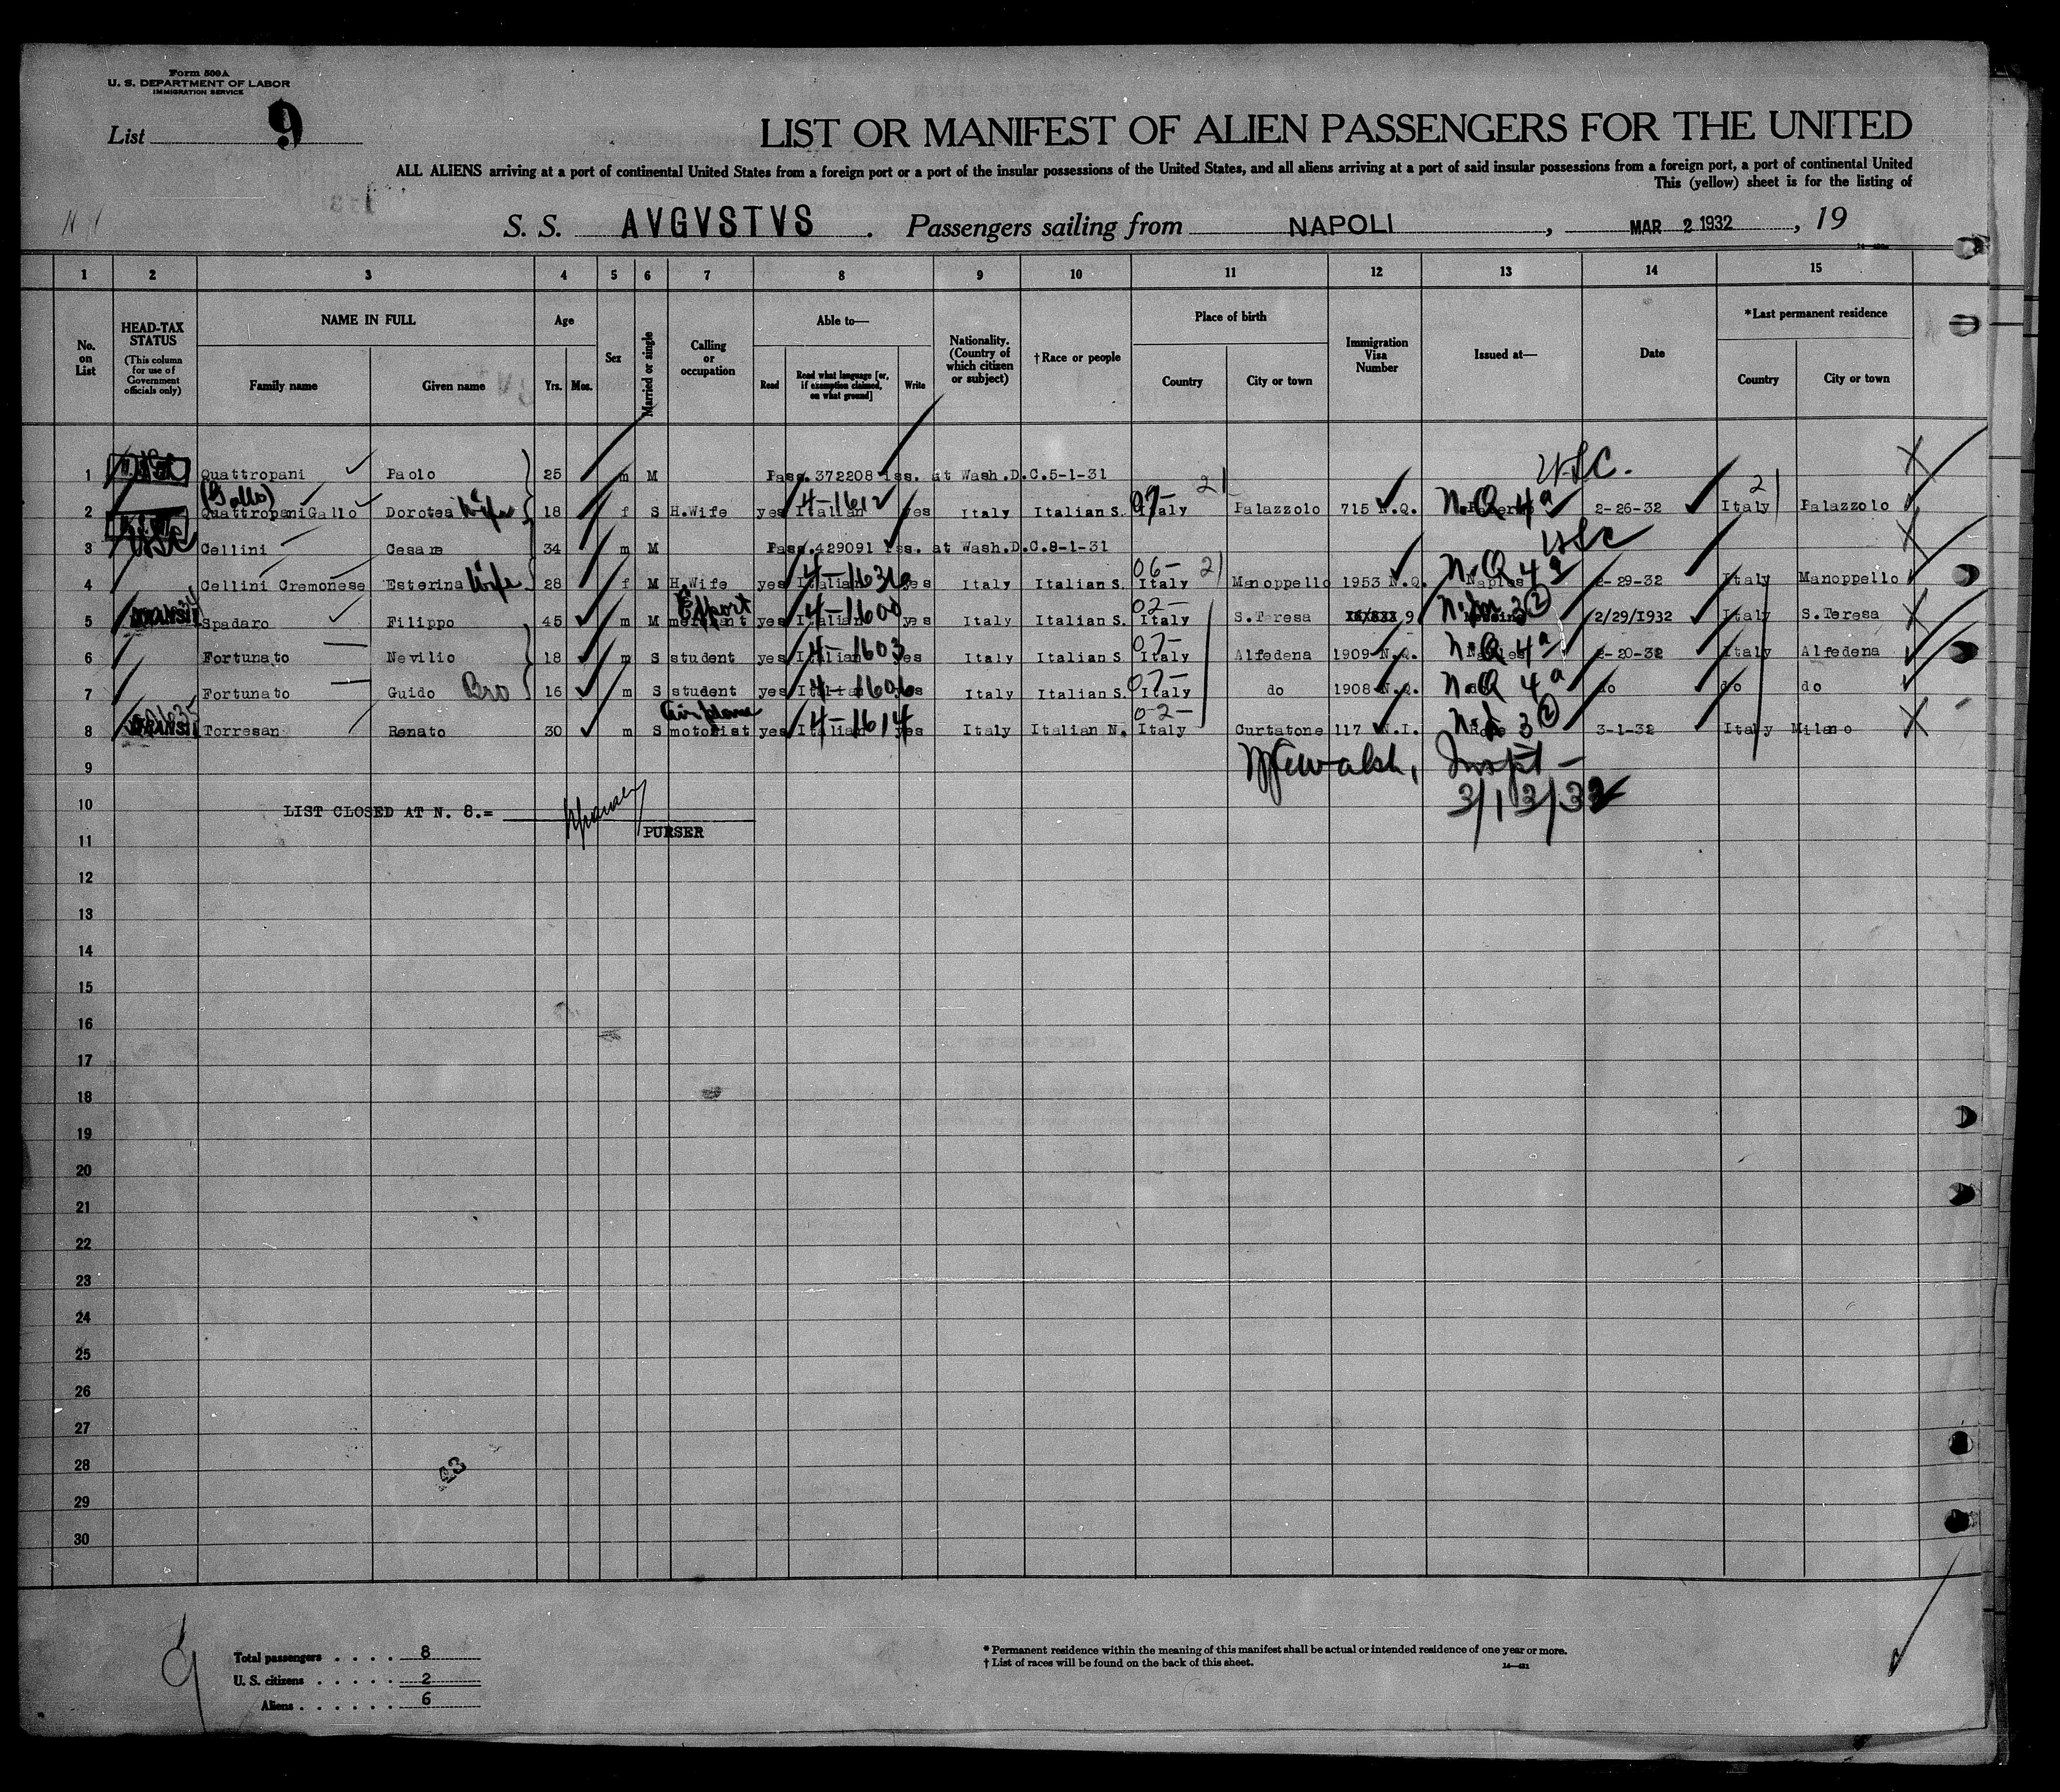 Form 500A
U. S. DEPARTMENT OF LABOR
IMMIGRATION SERVICE
List 9
LIST OR MANIFEST OF ALIEN PASSENGERS FOR THE UNITED
ALL ALIENS arriving at a port of continental United States from a foreign port or a port of the insular possessions of the United States, and all aliens arriving at a port of said insular possessions from a foreign port, a port of continental United
This (yellow) sheet is for the listing of
S. S. AVGVSTVS . Passengers sailing from NAPOLI , MAR 2 1932 , 19
1 2 3 4 5 6 7 8 9 10 11 12 13 14 15
No. on List
HEAD-TAX STATUS
(This column for use of Government officials only)
NAME IN FULL
Family name Given name
Age
Yrs. Mos.
Sex
Married or single
Calling or occupation
Able to—
Read
Read what language [or, if exemption claimed, on what ground]
Write
Nationality. (Country of which citizen or subject)
†Race or people
Place of birth
Country City or town
Immigration Visa Number
Issued at—
Date
*Last permanent residence
Country City or town
USC.
1 Quattropani Paolo 25 m M Pass.372208 iss. at Wash.D.C.5-1-31
(Gallo)
2 Quattropani Gallo Dorotea Wife 18 f S H.Wife yes Italian 4-1612 yes Italy Italian S. 07- Italy Palazzolo 715 N.Q. N.Q 4a 2-26-32 Italy Palazzolo
USC
3 Cellini Cesare 34 m M Pass.429091 iss. at Wash.D.C.8-1-31
4 Cellini Cremonese Esterina Wife 28 f M H.Wife yes Italian yes Italy Italian S. 06- Italy Manoppello 1953 N.Q. Naples 2-29-32 Italy Manoppello
Export
5 TRANSIT Spadaro Filippo 45 m M merchant yes Italian 4-1600 yes Italy Italian S. 02- Italy S.Teresa 9 2/29/1932 Italy S.Teresa
6 Fortunato Nevilio 18 m S student yes Italian 4-1603 yes Italy Italian S 07- Italy Alfedena 1909 N.Q. Naples N.Q 4a 2-20-32 Italy Alfedena
7 Fortunato Guido Bro 16 m S student yes Italian 4-1606 yes Italy Italian S. 07- Italy do 1908 N.Q. N.Q 4a do do do
Airplane
8 TRANSIT Torresan Renato 30 m S motorist yes Italian 4-1614 yes Italy Italian N. 02- Italy Curtatone 117 N.I. Rome 3-1-32 Italy Milano
9
Walsh, Inspt -
3/13/32
10 LIST CLOSED AT N. 8.=
PURSER
11
12
13
14
15
16
17
18
19
20
21
22
23
24
25
26
27
28
29
30
43
9
Total passengers . . . . 8
U. S. citizens . . . . . 2
Aliens . . . . . . 6
* Permanent residence within the meaning of this manifest shall be actual or intended residence of one year or more.
† List of races will be found on the back of this sheet.